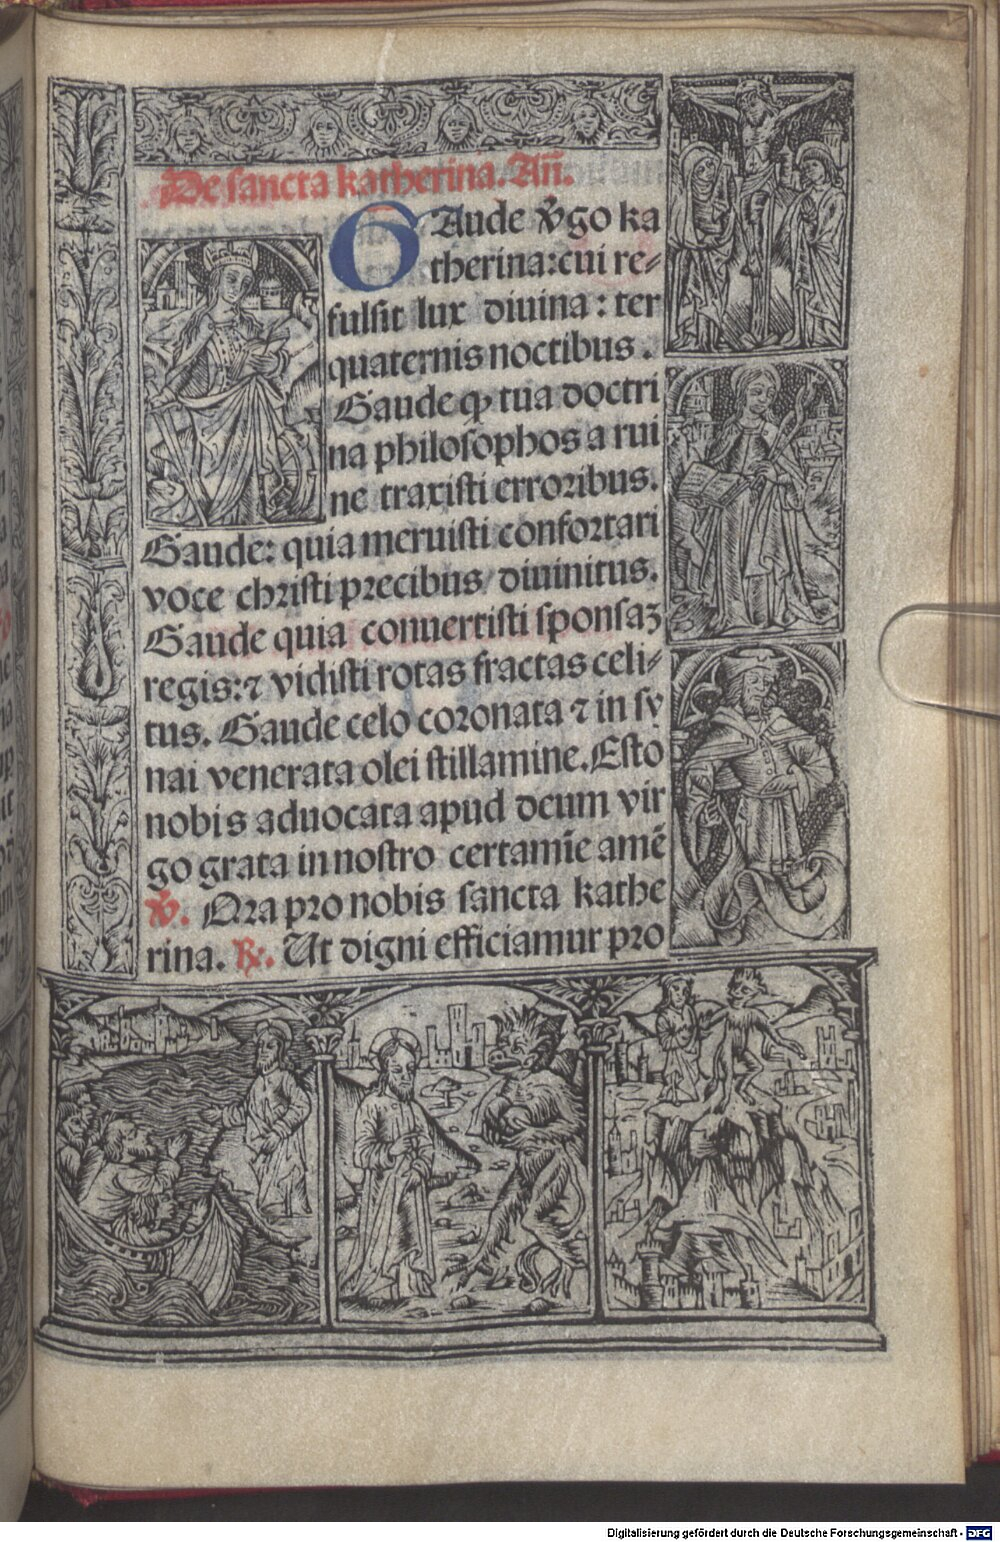 De sancta katherina. Añ.
GAude v̄go ka
therina: cui re⸗
fulsit lux diuina: ter
quaternis noctibus.
Gaude ꝙ tua doctri
na philosophos a rui
ne traxisti erroribus.
Gaude: quia meruisti confortari
voce christi precibus diuinitus.
Gaude quia conuertisti sponsaꝫ
regis: ⁊ vidisti rotas fractas celi⸗
tus. Gaude celo coronata ⁊ in sy
nai venerata olei stillamine. Esto
nobis aduocata apud deum vir
go grata in nostro certamīe amē
℣. Ora pro nobis sancta kathe
rina. ℟. Ut digni efficiamur pro
Digitalisierung gefördert durch die Deutsche Forschungsgemeinschaft - DFG